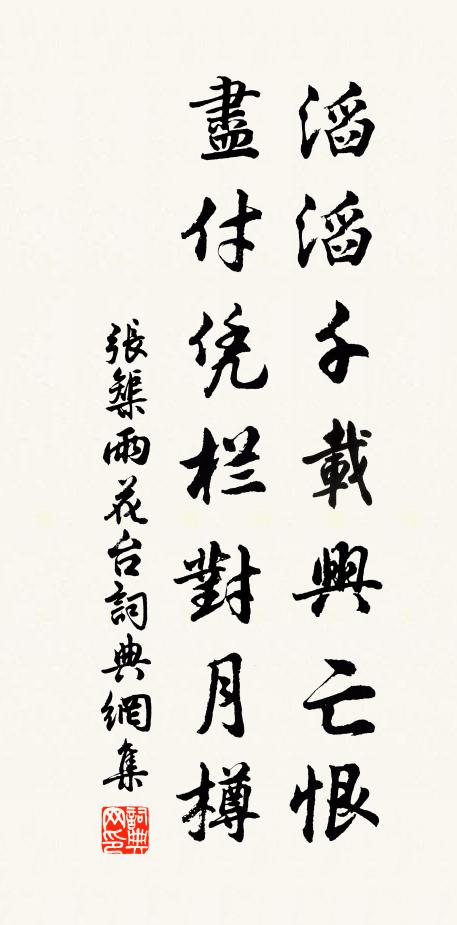 滔滔千載興亡恨
盡付凭栏對月樽
張榘雨花台詞典網集
詞典网印